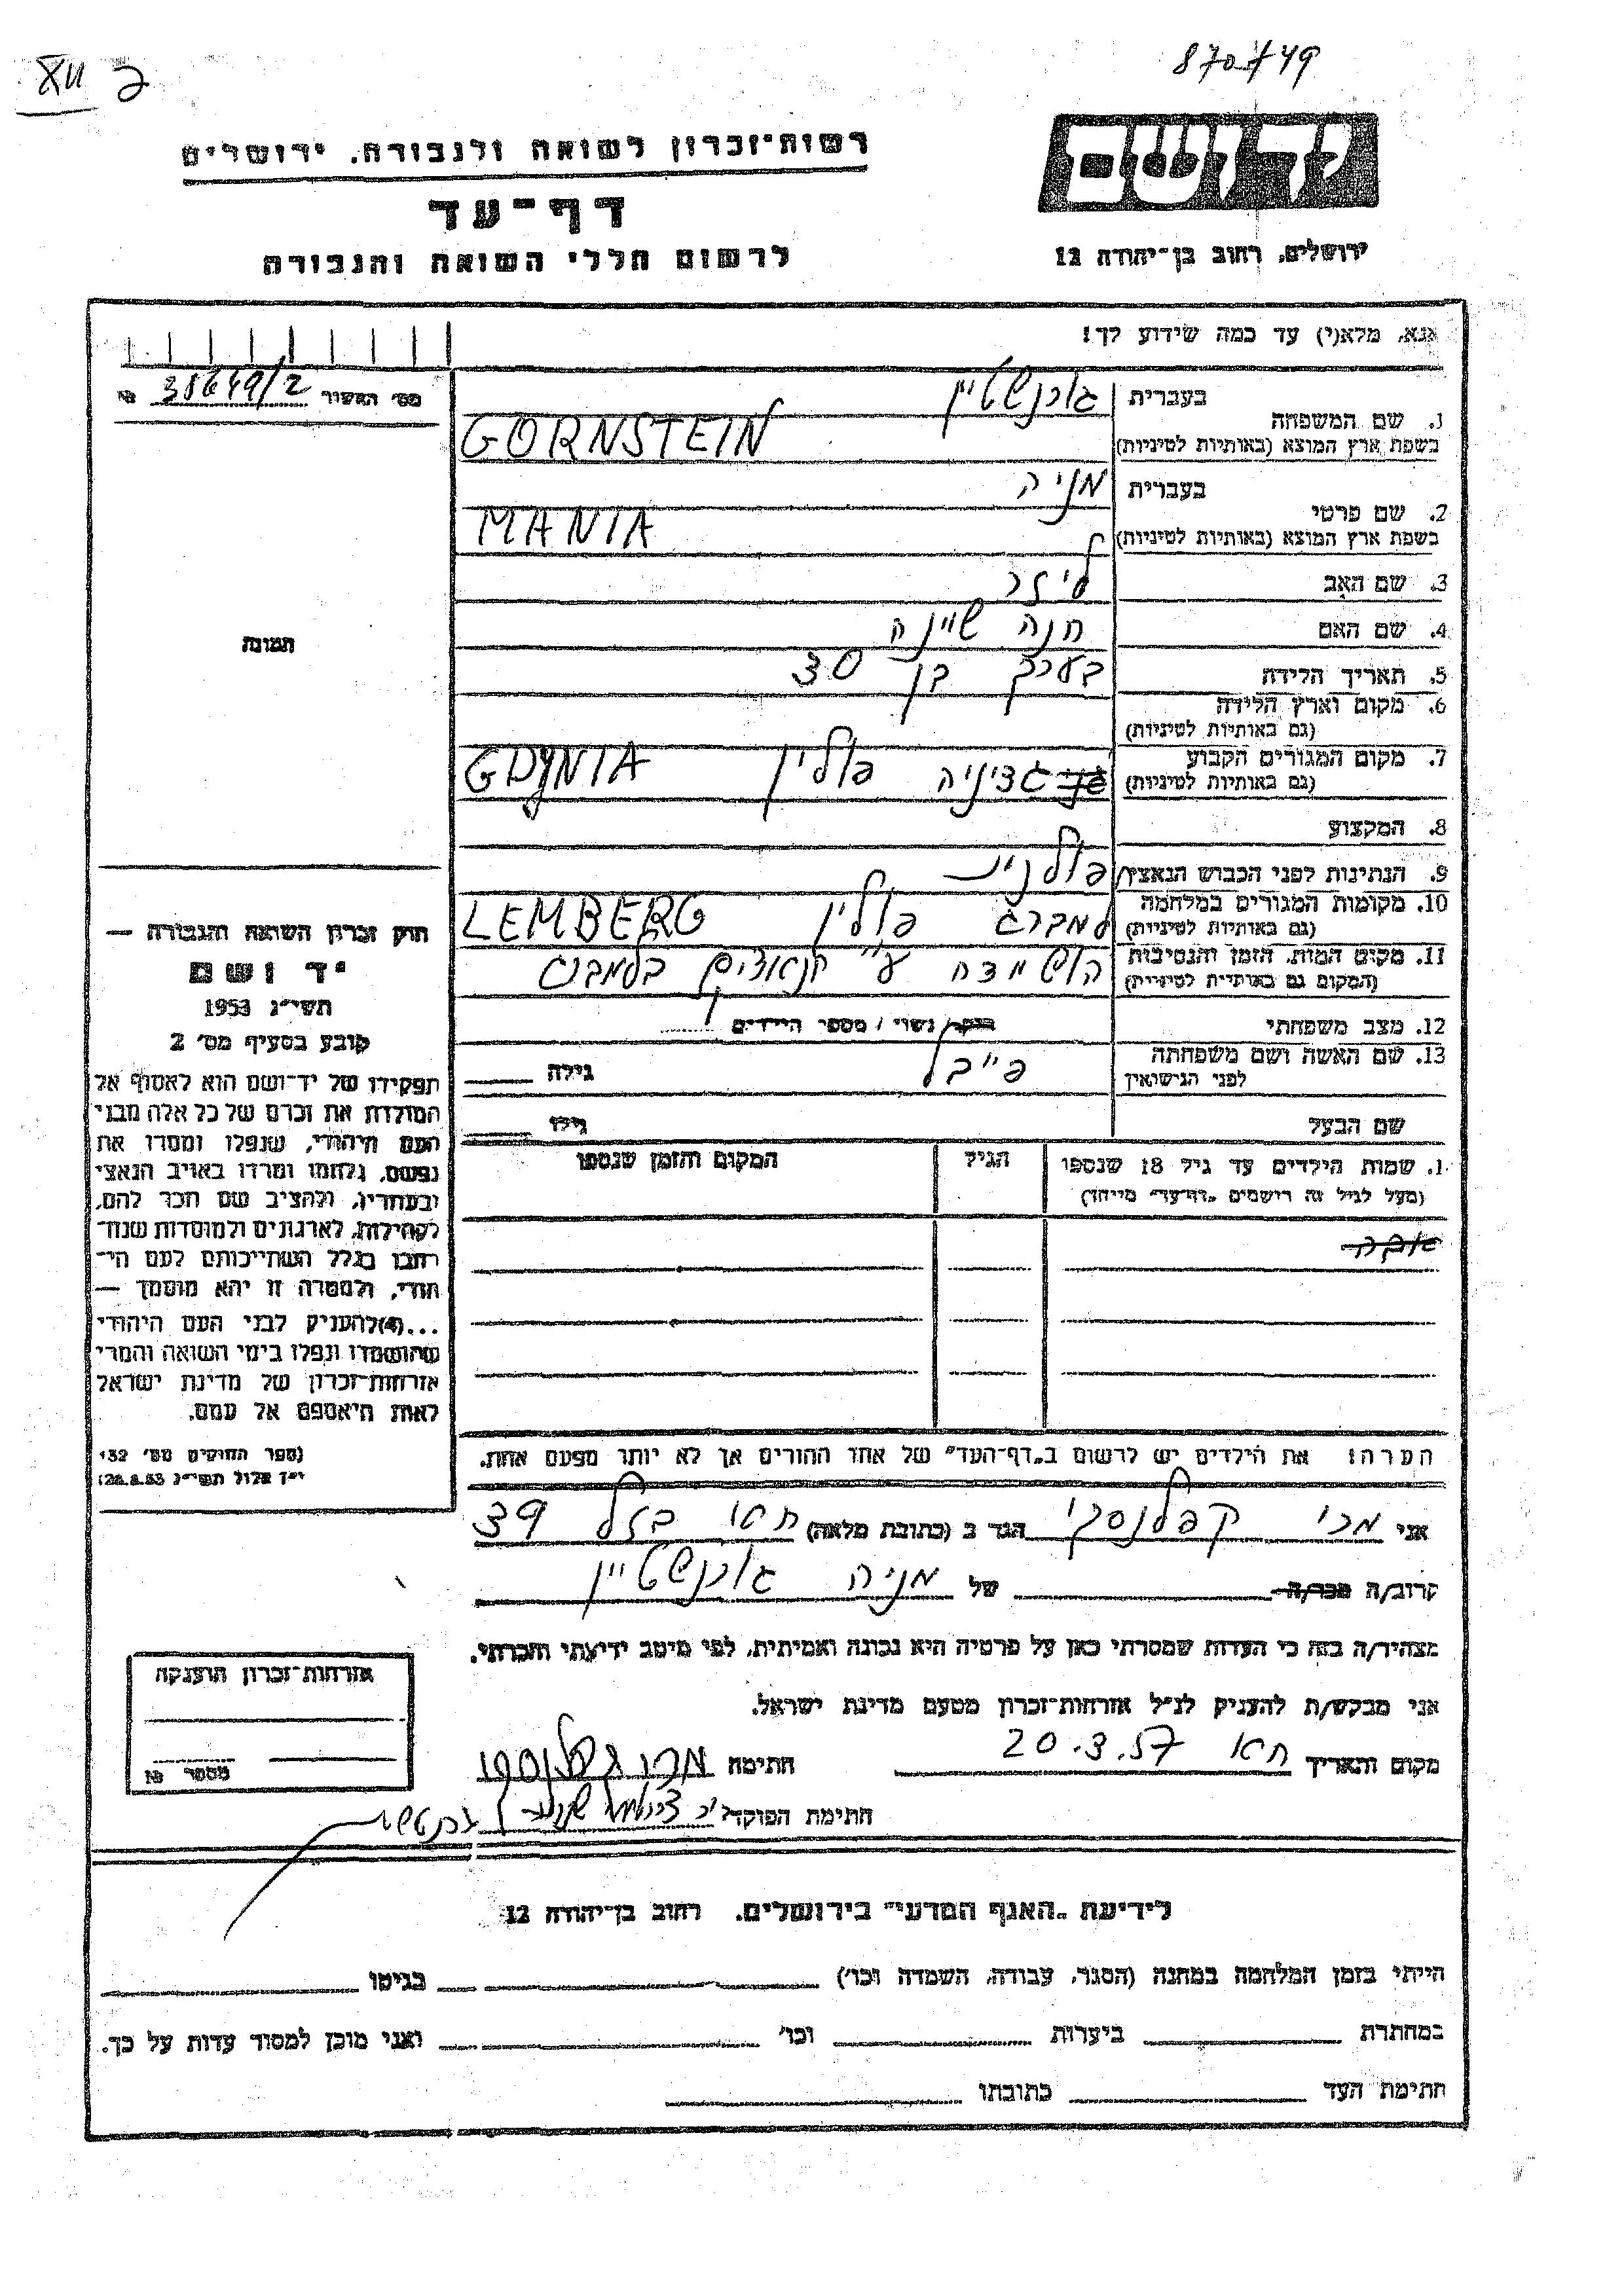 870749
XII ב
יד ושם
רשות־זכרון לשואה ולגבורה, ירושלים
דף־עד
לרשום חללי השואה והגבורה
ירושלים, רחוב בן־יהודה 12
אנא, מלא(י) עד כמה שידוע לך!
מס' האשור № 38649/2
1. שם המשפחה
בעברית גורנשטיין
בשפת ארץ המוצא (באותיות לטיניות) GORNSTEIN
2. שם פרטי
בעברית מניה
בשפת ארץ המוצא (באותיות לטיניות) MANIA
3. שם האב לייזר
4. שם האם חנה שיינה
5. תאריך הלידה בערך בן 30
6. מקום וארץ הלידה
(גם באותיות לטיניות)
7. מקום המגורים הקבוע גדיניה פולין GDYNIA
(גם באותיות לטיניות)
8. המקצוע
9. הנתינות לפני הכבוש הנאצי פולנית
10. מקומות המגורים במלחמה למברג פולין LEMBERG
(גם באותיות לטיניות)
11. מקום המות, הזמן והנסיבות הושמדה ע"י הנאצים בלמברג
(המקום גם באותיות לטיניות)
12. מצב משפחתי רווק / נשוי / מספר הילדים
13. שם האשה ושם משפחתה פייבל גילה
לפני הנישואין
שם הבעל גילו
1. שמות הילדים עד גיל 18 שנספו הגיל המקום והזמן שנספו
(מעל לגיל זה רישמים „דף־עד" מייחד)
הערה: את הילדים יש לרשום ב„דף־העד" של אחד ההורים אך לא יותר מפעם אחת.
תמונה
חוק זכרון השואה והגבורה —
יד ושם
תשי"ג 1953
קובע בסעיף מס' 2
תפקידו של יד־ושם הוא לאסוף אל
המולדת את זכרם של כל אלה מבני
העם היהודי, שנפלו ומסרו את
נפשם, נלחמו ומרדו באויב הנאצי
ובעוזריו, ולהציב שם וזכר להם,
לקהילות, לארגונים ולמוסדות שנח־
רבו בגלל השתייכותם לעם הי־
הודי, ולמטרה זו יהא מוסמך —
...(4) להעניק לבני העם היהודי
שהושמדו ונפלו בימי השואה והמרי
אזרחות־זכרון של מדינת ישראל
לאות היאספם אל עמם.
(ספר החוקים מס' 132
י"ז אלול תשי"ג 28.8.53)
אני מרי קפלנסקי הגר ב (כתובת מלאה) חפ' 39
קרוב/ה מכר/ה של מניה גורנשטיין
מצהיר/ה בזה כי העדות שמסרתי כאן על פרטיה היא נכונה ואמיתית, לפי מיטב ידיעתי והכרתי.
אני מבקש/ת להעניק לנ"ל אזרחות־זכרון מטעם מדינת ישראל.
מקום ותאריך חפ' 20.3.57 חתימה
חתימת הפוקד
אזרחות־זכרון הוענקה
מספר №
לידיעת „האגף המדעי" בירושלים, רחוב בן־יהודה 12
הייתי בזמן המלחמה במחנה (הסגר, עבודה, השמדה וכו') בגיטו
במחתרת ביערות וכו' ואני מוכן למסור עדות על כך.
חתימת העד כתובתו